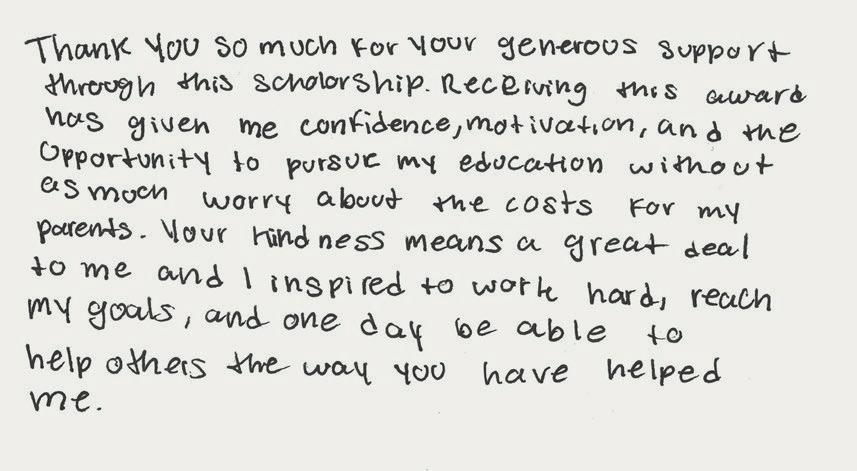 Thank you so much for your generous support
through this scholorship. Receiving this award
has given me confidence, motivation, and the
opportunity to pursue my education without
as much worry about the costs for my
parents. Your kindness means a great deal
to me and I inspired to work hard, reach
my goals, and one day be able to
help others the way you have helped
me.